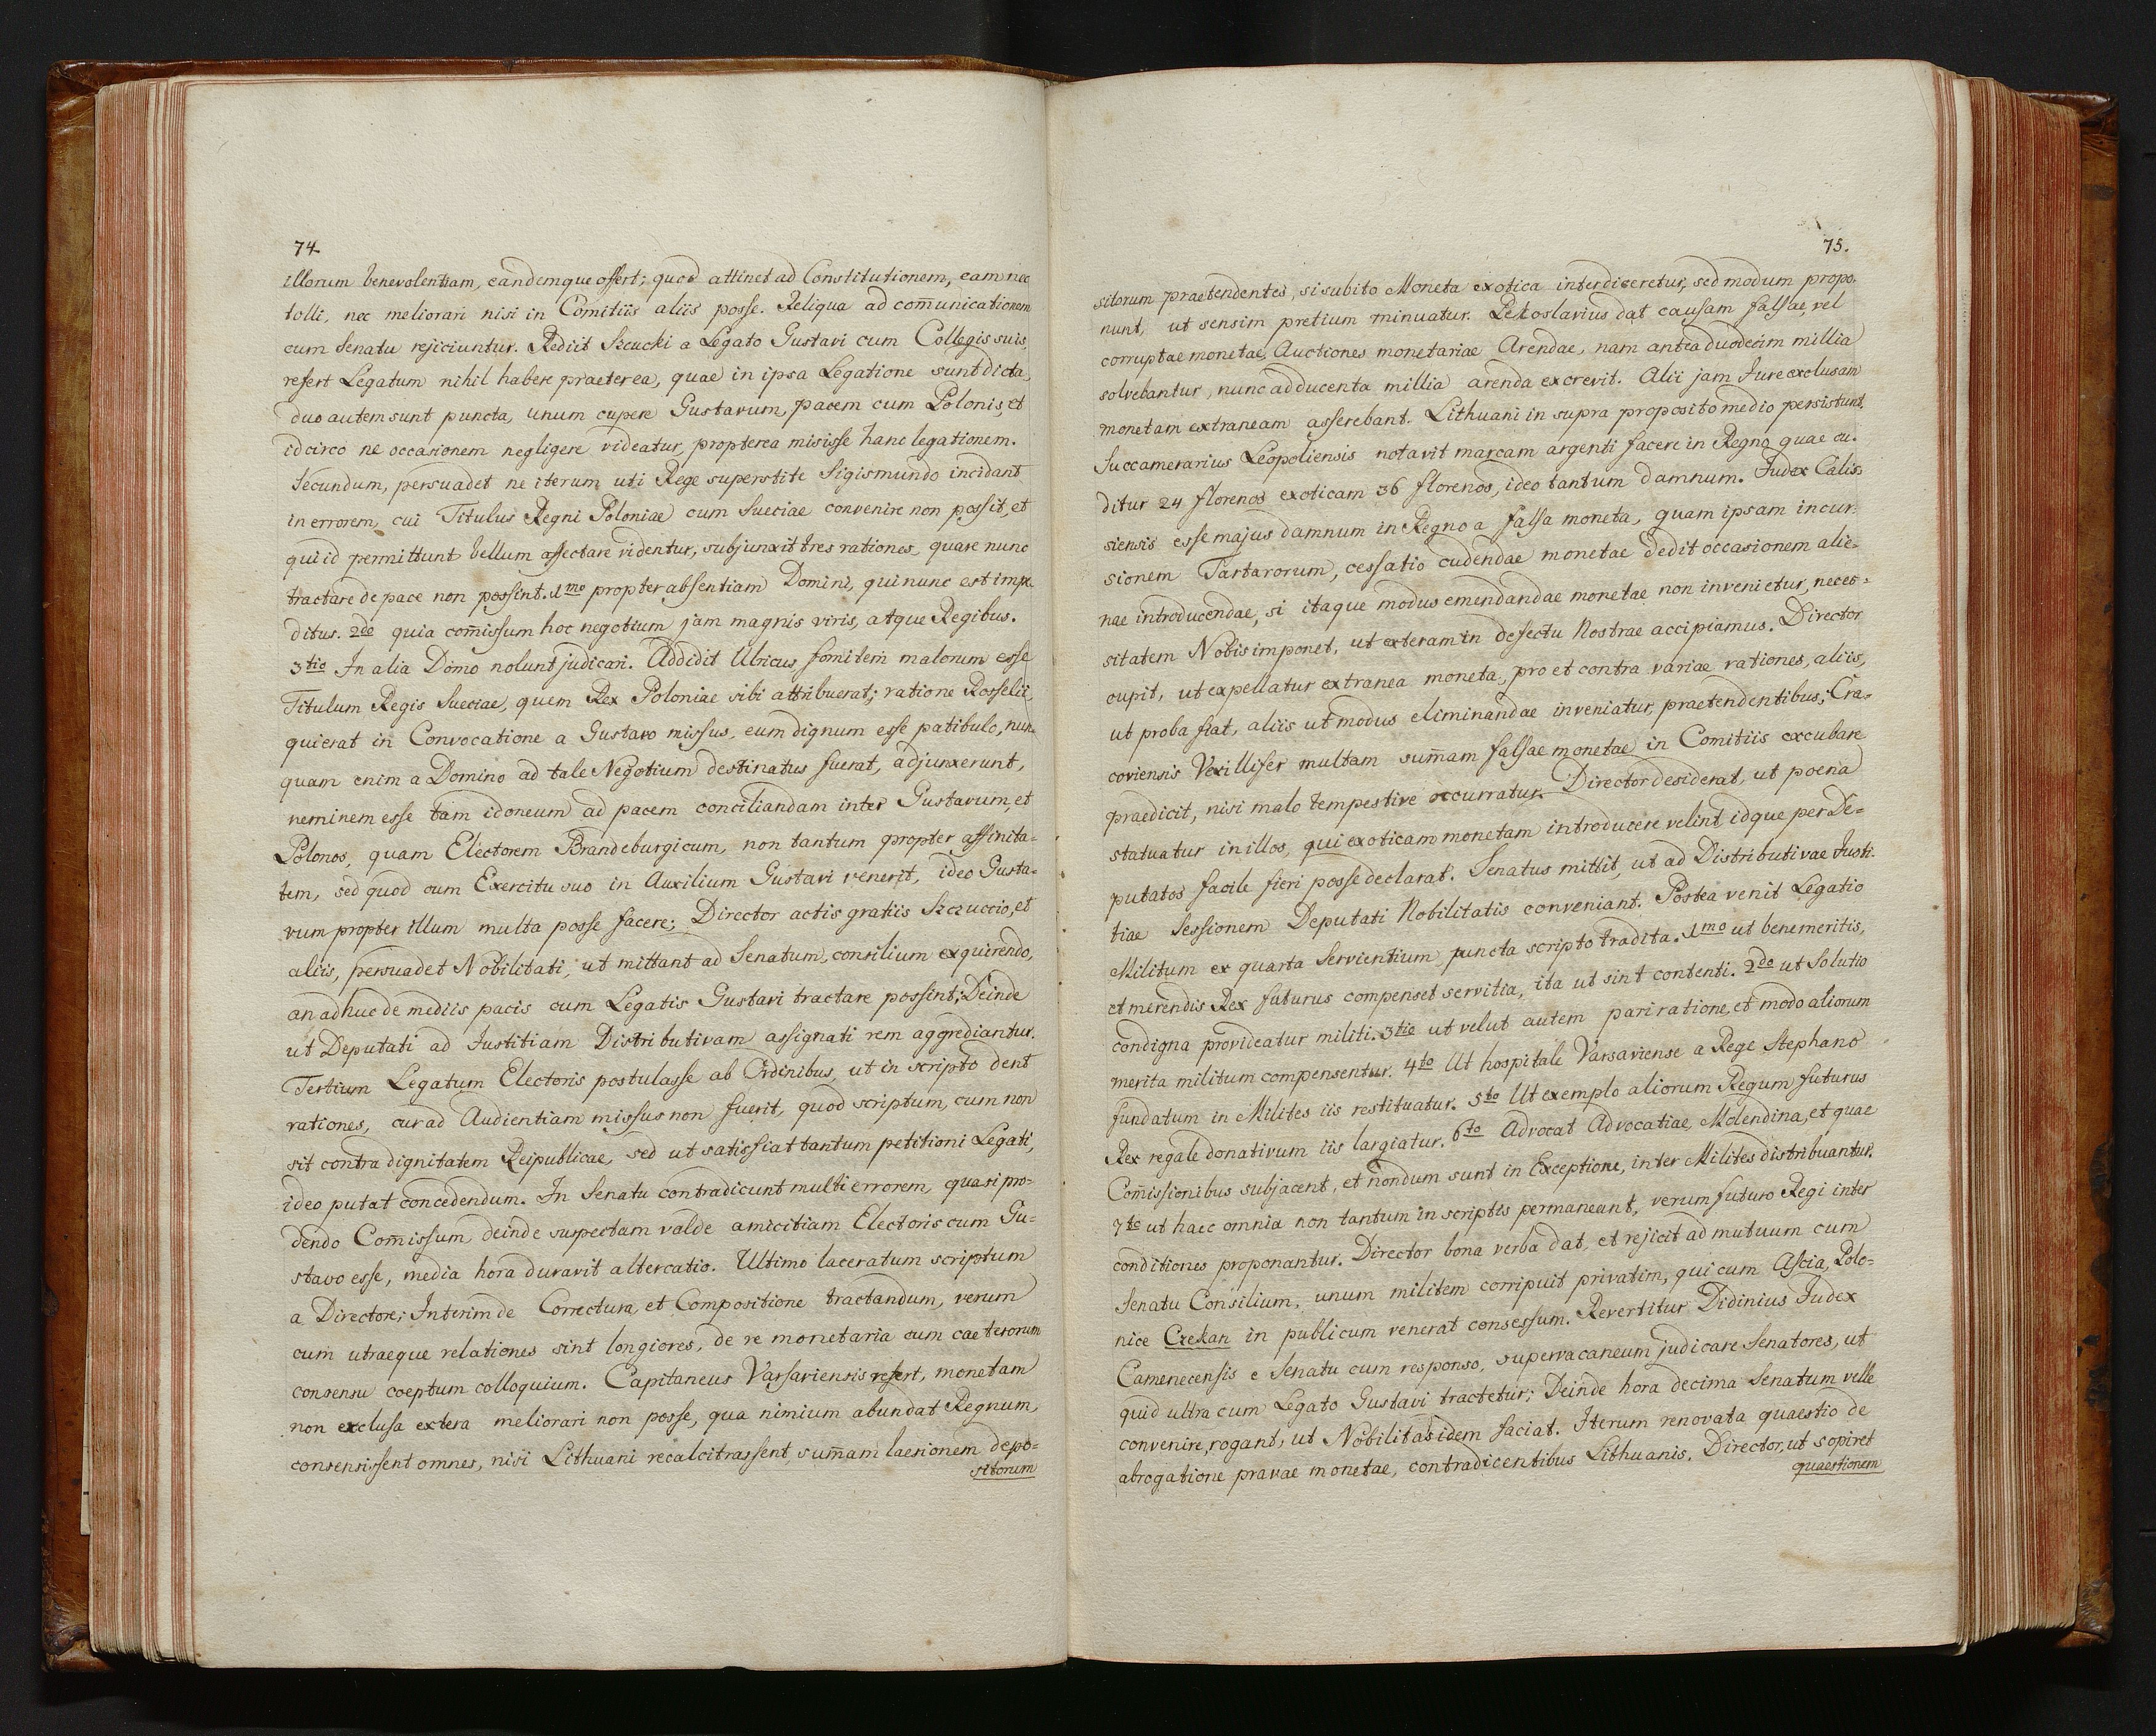 74.
illorum benevolentiam, eandemque offert; quod attinet ad Constitutionem, eam nec
tolli, nec meliorari nisi in Comitiis aliis posse. Reliqua ad com̄unicationem
cum Senatu rejiciuntur. Rediit Szcucki a Legato Gustavi cum Collegis suis,
refert Legatum nihil habere praeterea, quae in ipsa Legatione sunt dicta,
duo autem sunt puncta, unum cupere Gustavum, pacem cum Polonis, et
idcirco ne occasionem negligere videatur, propterea misisse hanc legationem.
Secundum, persuadet ne iterum uti Rege superstite Sigismundo incidant
in errorem, cui Titulus Regni Poloniae cum Sueciae convenire non possit, et
qui id permittunt bellum affectare videntur, subjunxit tres rationes, quare nunc
tractare de pace non possint. 1mo propter absentiam Domini, qui nunc est impe
ditus. 2do quia com̄issum hoc negotium jam magnis viris, atque Regibus.
3tio In alia Domo nolunt judicari. Addidit Ulricus fomitem malorum esse
Titulum Regis Sueciae, quem Rex Poloniae sibi attribuerat; ratione Rosselii,
qui erat in Convocatione a Gustavo missus, eum dignum esse patibulo, nun-
quam enim a Domino ad tale Negotium destinatus fuerat, adjunxerunt,
neminem esse tam idoneum ad pacem conciliandam inter Gustavum, et
Polonos, quam Electorem Brandeburgicum, non tantum propter affinita=
tem, sed quod cum Exercitu suo in Auxilium Gustavi venerit, ideo Gusta=
vum propter illum multa posse facere; Director actis gratiis Szczuccio, et
aliis, persuadet Nobilitati, ut mittant ad Senatum, consilium exquirendo,
an adhuc de mediis pacis cum Legatis Gustavi tractare possint; Deinde
ut Deputati ad Justitiam Distributivam assignati rem aggrediantur.
Tertium Legatum Electoris postulasse ab Ordinibus, ut in scripto dent
rationes, cur ad Audientiam missus non fuerit, quod scriptum, cum non
sit contra dignitatem Reipublicae, sed ut satisfiat tantum petitioni Legati,
ideo putat concedendum. In Senatu contradicunt multi errorem, quasi pro=
dendo Com̄issum deinde suspectam valde amicitiam Electoris cum Gu=
stavo esse, media hora duravit altercatio. Ultimo laceratum scriptum
a Directore; Interim de Correctura, et Compositione tractandum, verum
cum utraeque relationes sint longiores, de re monetaria cum caeterorum
consensu coeptum colloquium. Capitaneus Varsaviensis refert, monetam
non exclusa extera meliorari non posse, qua nimium abundat Regnum,
consensissent omnes, nisi Lithuani recalcitrassent, sum̄am laesionem depo=
sitorum
75.
sitorum praetendentes, si subito Moneta exotica interdiceretur, sed modum propo.
nunt, ut sensim pretium minuatur. Retoslavius dat causam falsae, vel
corruptae monetae, Auctiones monetariae Arendae, nam antea duodecim millia
solvebantur, nunc ad ducenta millia arenda excrevit. Alii jam Jure exclusam
monetam extraneam asserebant. Lithuani in supra proposito medio persistunt.
Succamerarius Leopoliensis notavit marcam argenti facere in Regno quae cu.
ditur 24 florenos exoticam 36 florenos, ideo tantum damnum. Judex Calis=
siensis esse majus damnum in Regno a falsa moneta, quam ipsam incur=
sionem Tartarorum, cessatio cudendae monetae dedit occasionem alie=
nae introducendae, si itaque modus emendandae monetae non invenietur, neces=
sitatem Nobis imponet, ut exteram in defectu Nostrae accipiamus. Director
cupit, ut expellatur extranea moneta, pro et contra variae rationes, aliis,
ut proba fiat, aliis ut modus eliminandae inveniatur, praetendentibus; Cra=
coviensis Vexillifer multam sum̄am falsae monetae in Comitiis excubare
praedicit, nisi malo tempestive occurratur. Director desiderat, ut poena
statuatur in illos, qui exoticam monetam introducere velint, idque per De=
putatos facile fieri posse declarat. Senatus mittit, ut ad Distributivae Justi.
tiae Sessionem Deputati Nobilitatis conveniant. Postea venit Legatio
Militum ex quarta Servientium, puncta scripto tradita. 1mo ut benemeritis,
et merendis Rex futurus compenset servitia, ita ut sint contenti. 2do ut Solutio
condigna provideatur militi. 3tio ut velut autem pari ratione, et modo aliorum
merita militum compensentur. 4to Ut hospitale Varsaviense a Rege Stephano
fundatum in Milites iis restituatur. 5to Ut exemplo aliorum Regum futurus
Rex regale donativum iis largiatur. 6to Advocat Advocatiae, Molendina, et quae
Com̄issionibus subjacent, et nondum sunt in Exceptione, inter Milites distribuantur.
7to ut haec omnia non tantum in scriptis permaneant, verum futuro Regi inter
conditiones proponantur. Director bona verba dat, et rejicit ad mutuum cum
Senatu Consilium, unum militem corripuit privatim, qui cum Ascia, Polo=
nice Czekan in publicum venerat consessum. Revertitur Didinius Judex
Camenecensis e Senatu cum responso, supervacaneum judicare Senatores, ut
quid ultra cum Legato Gustavi tractetur; Deinde hora decima Senatum velle
convenire, rogant, ut Nobilitas idem faciat. Iterum renovata quaestio de
abrogatione pravae monetae, contradicentibus Lithuanis. Director, ut sopiret
quaestionem